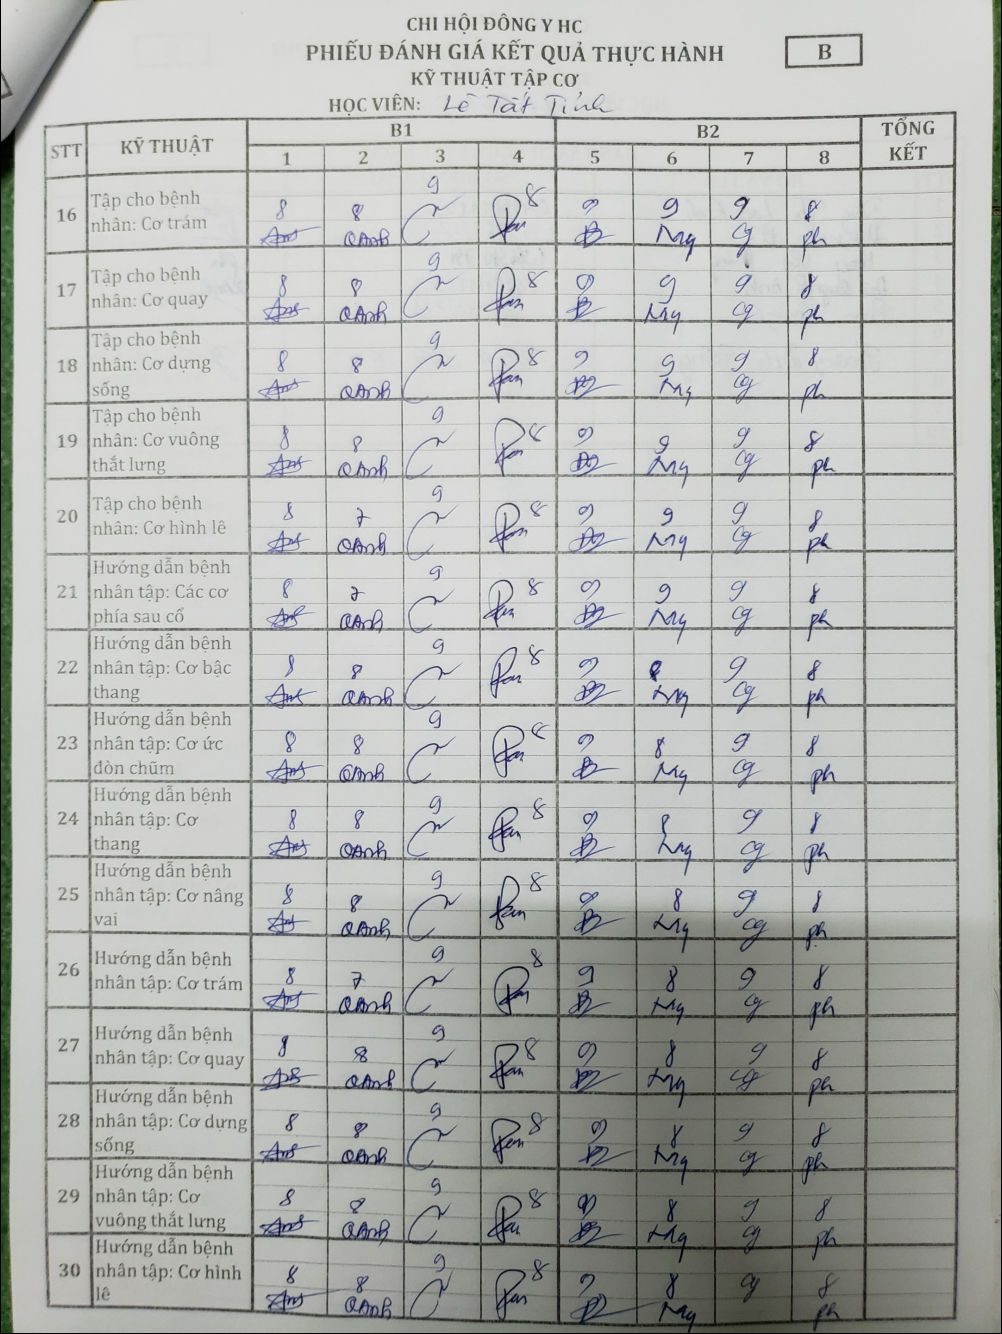 CHI HỘI ĐÔNG Y HC
PHIẾU ĐÁNH GIÁ KẾT QUẢ THỰC HÀNH
B
KỸ THUẬT TẬP CƠ
HỌC VIÊN: Lê Tất Tỉnh
STT KỸ THUẬT B1 B2 TỔNG KẾT
1 2 3 4 5 6 7 8
16 Tập cho bệnh nhân: Cơ trám
8 8 9 8 9 9 9 8
QAnh Mỹ ph
17 Tập cho bệnh nhân: Cơ quay
8 8 9 8 9 9 9 8
QAnh Mỹ ph
18 Tập cho bệnh nhân: Cơ dựng sống
8 8 9 8 9 9 9 8
QAnh Mỹ ph
19 Tập cho bệnh nhân: Cơ vuông thắt lưng
8 8 9 8 9 9 9 8
QAnh Mỹ ph
20 Tập cho bệnh nhân: Cơ hình lê
8 7 9 8 9 9 9 8
QAnh Mỹ ph
21 Hướng dẫn bệnh nhân tập: Các cơ phía sau cổ
8 7 9 8 9 9 9 8
QAnh Mỹ ph
22 Hướng dẫn bệnh nhân tập: Cơ bậc thang
8 8 9 8 9 8 9 8
QAnh Mỹ ph
23 Hướng dẫn bệnh nhân tập: Cơ ức đòn chũm
8 8 9 8 9 8 9 8
QAnh Mỹ ph
24 Hướng dẫn bệnh nhân tập: Cơ thang
8 8 9 8 9 8 9 8
QAnh Mỹ ph
25 Hướng dẫn bệnh nhân tập: Cơ nâng vai
8 8 9 8 9 8 9 8
QAnh Mỹ ph
26 Hướng dẫn bệnh nhân tập: Cơ trám
8 7 9 8 9 8 9 8
QAnh Mỹ ph
27 Hướng dẫn bệnh nhân tập: Cơ quay
8 8 9 8 9 8 9 8
QAnh Mỹ ph
28 Hướng dẫn bệnh nhân tập: Cơ dựng sống
8 8 9 8 9 8 9 8
QAnh Mỹ ph
29 Hướng dẫn bệnh nhân tập: Cơ vuông thắt lưng
8 8 9 8 9 8 9 8
QAnh Mỹ ph
30 Hướng dẫn bệnh nhân tập: Cơ hình lê
8 8 9 8 9 8 8
QAnh Mỹ ph